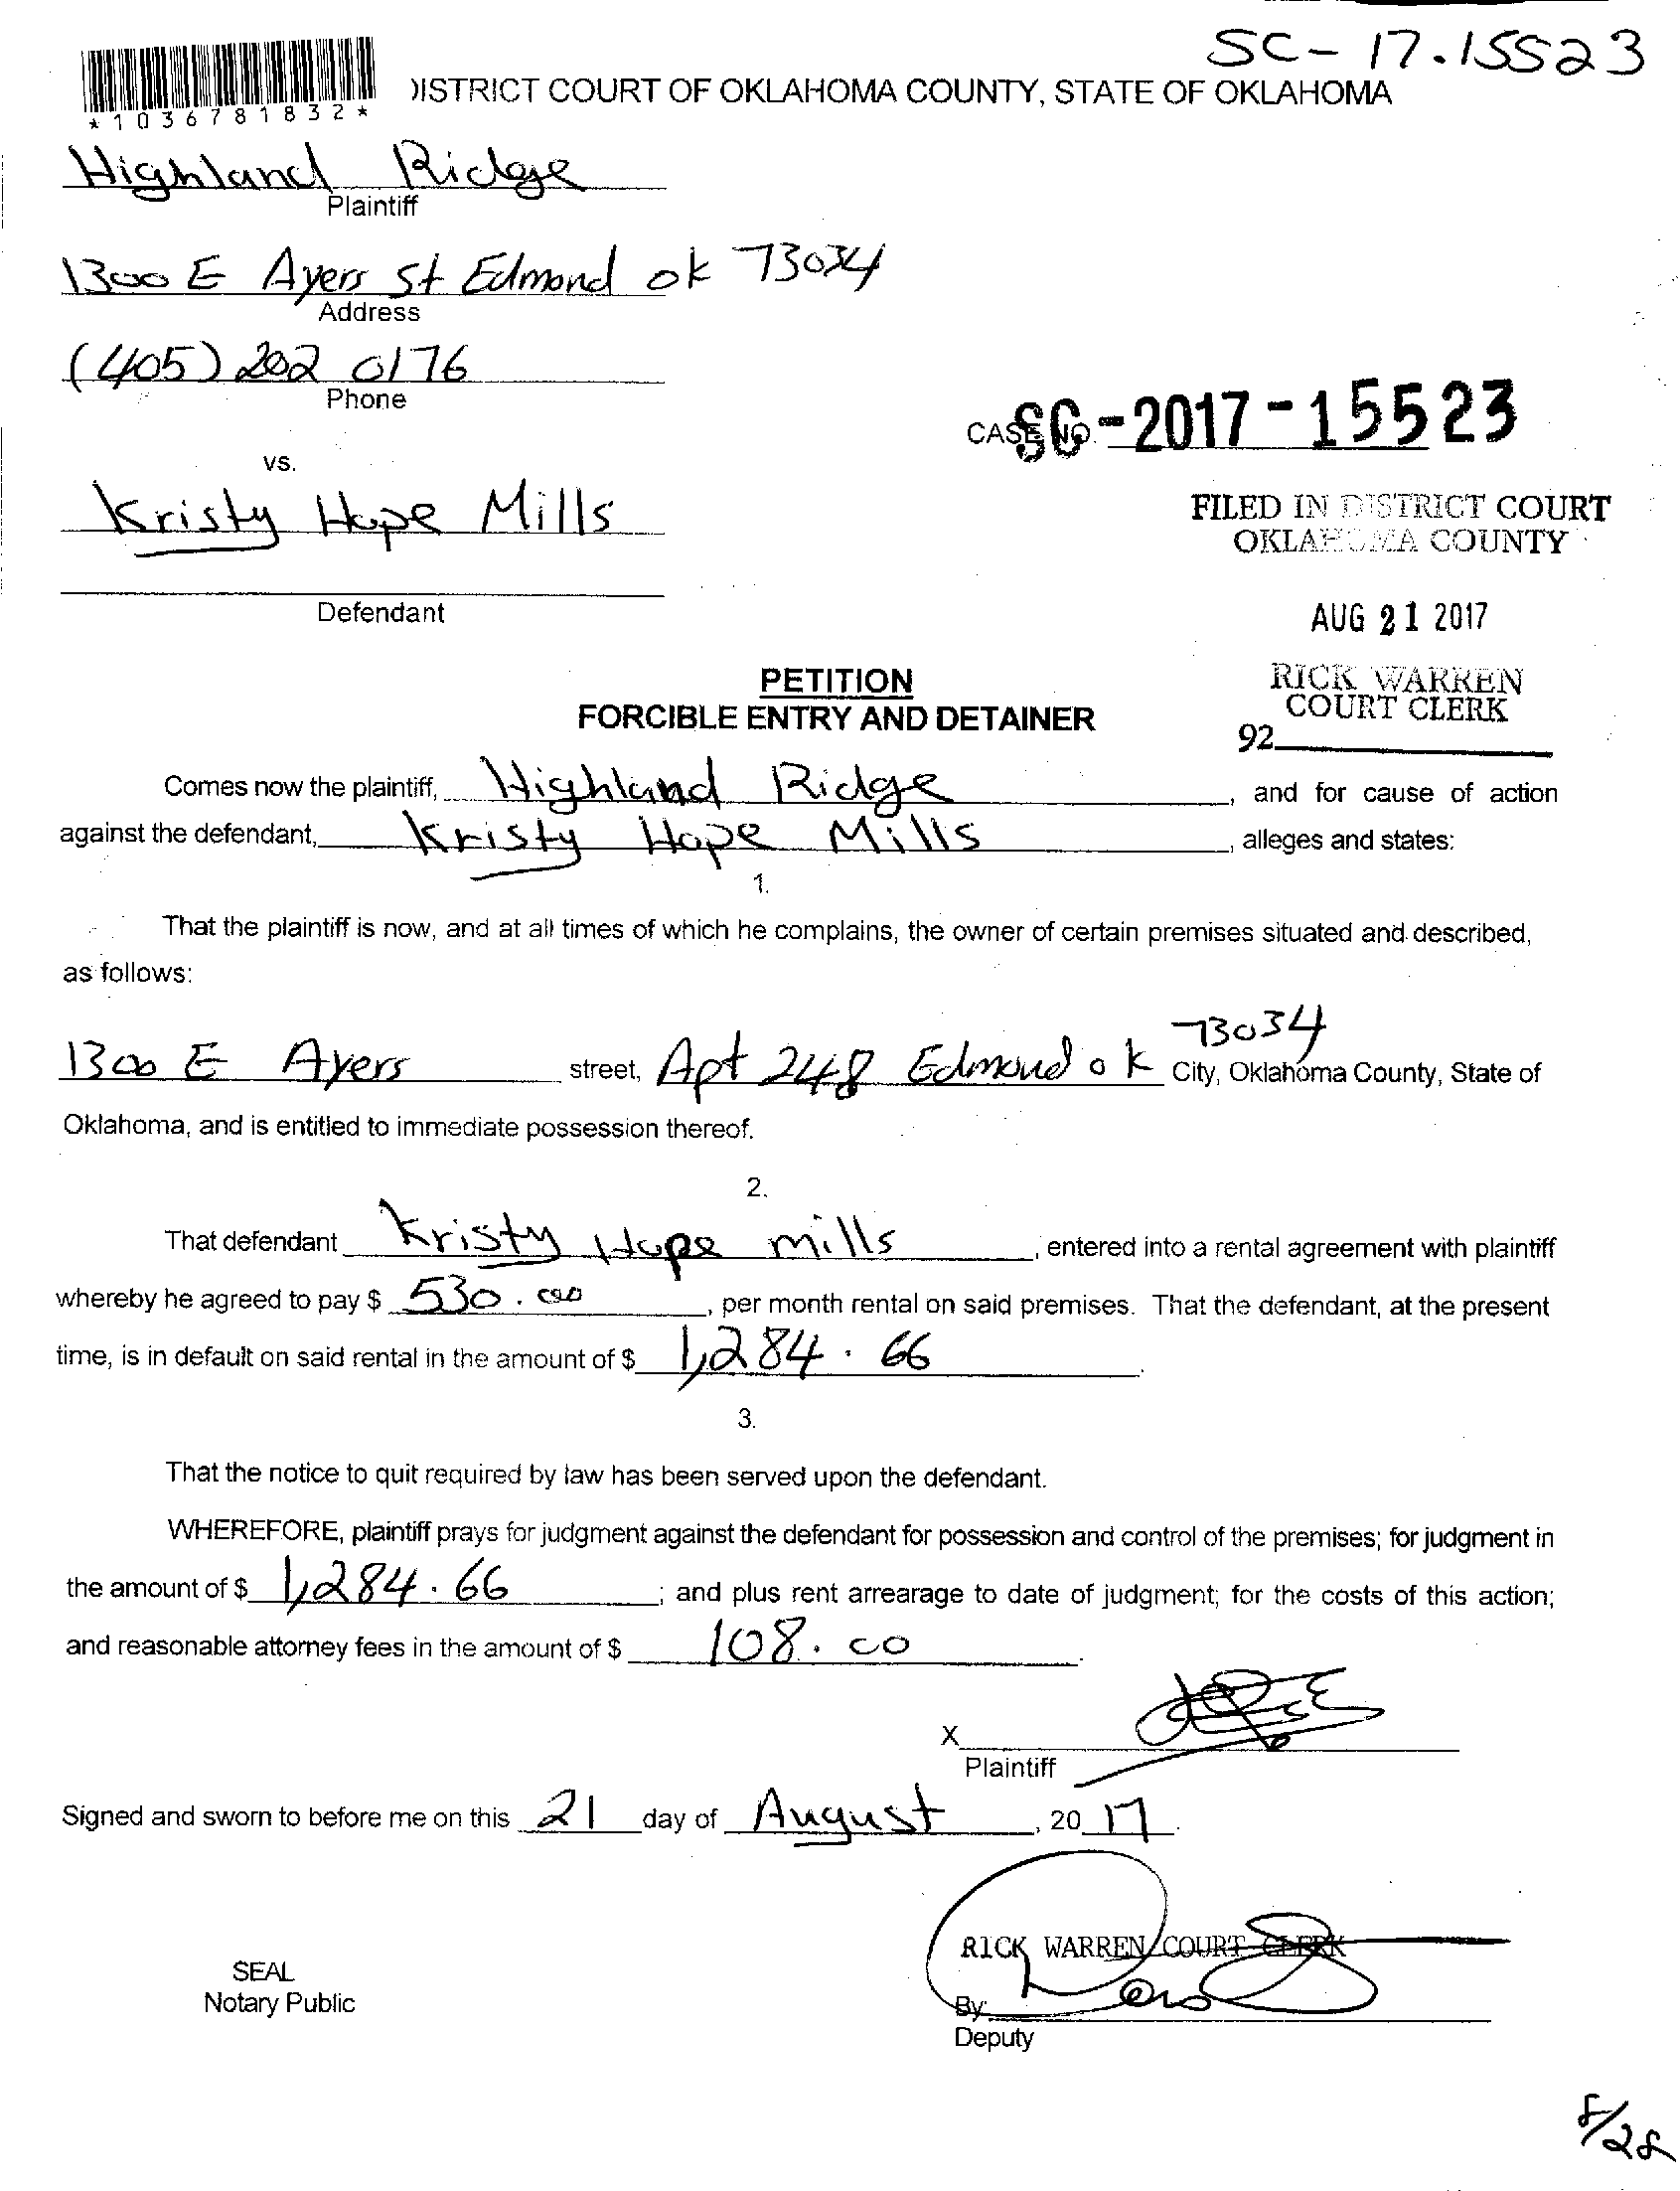 SC-17.15523
*1036781832*
DISTRICT COURT OF OKLAHOMA COUNTY, STATE OF OKLAHOMA
Highland Ridge
Plaintiff
1300 E Ayers St Edmond ok 73034
Address
(405) 202 0176
Phone
CASE NO. SC-2017-15523
vs.
Kristy Hope Mills
Defendant
FILED IN DISTRICT COURT
OKLAHOMA COUNTY
AUG 21 2017
RICK WARREN
COURT CLERK
92
PETITION
FORCIBLE ENTRY AND DETAINER
Comes now the plaintiff, Highland Ridge, and for cause of action
against the defendant, Kristy Hope Mills, alleges and states:
1.
That the plaintiff is now, and at all times of which he complains, the owner of certain premises situated and described,
as follows:
1300 E Ayers street, Apt 248 Edmond ok 73034 City, Oklahoma County, State of
Oklahoma, and is entitled to immediate possession thereof.
2.
That defendant Kristy Hope mills, entered into a rental agreement with plaintiff
whereby he agreed to pay $ 530.00, per month rental on said premises. That the defendant, at the present
time, is in default on said rental in the amount of $ 1,284.66.
3.
That the notice to quit required by law has been served upon the defendant.
WHEREFORE, plaintiff prays for judgment against the defendant for possession and control of the premises; for judgment in
the amount of $ 1,284.66; and plus rent arrearage to date of judgment; for the costs of this action;
and reasonable attorney fees in the amount of $ 108.00.
X
Plaintiff
Signed and sworn to before me on this 21 day of August, 2017.
RICK WARREN COURT CLERK
SEAL
Notary Public
By:
Deputy
8/28